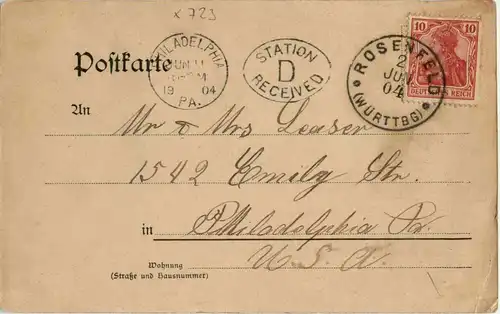 x 723
Postkarte
PHILADELPHIA
JUN 11
19 04
PA.
STATION
D
RECEIVED
ROSENFELD
2
JUN
04
(WÜRTTBG)
10 10
DEUTSCHES REICH
An
Mr & Mrs Leaser
1542 Emily Str.
in Philadelphia Pa.
Wohnung
(Straße und Hausnummer)
U. S. A.